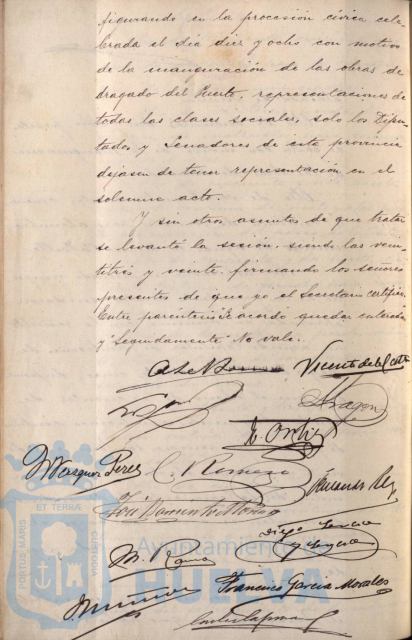 figurando en la procesión cívica cele-
brada el dia diez y ocho con motivo
de la inauguración de las obras de
dragado del Puerto, representaciones de
todas las clases sociales, solo los Dipu-
tados y Senadores de esta provincia
dejasen de tener representación en el
solemne acto.
Y sin otros asuntos de que tratar
se levantó la sesión, siendo las vein-
titres y veinte, firmando los señores
presentes de que yo el Secretario certifico.
Entre parentesis "acordó quedar enterado
y "Seguidamente" No vale.
Vicente de la
Aragon
Ortiz
Marquez Perez C. Romero
José
Diego Garcia
M.
Francisco Garcia Morales
PORTUS MARIS
ET TERRÆ
CUSTODIA
Ayuntamiento de
HUELVA